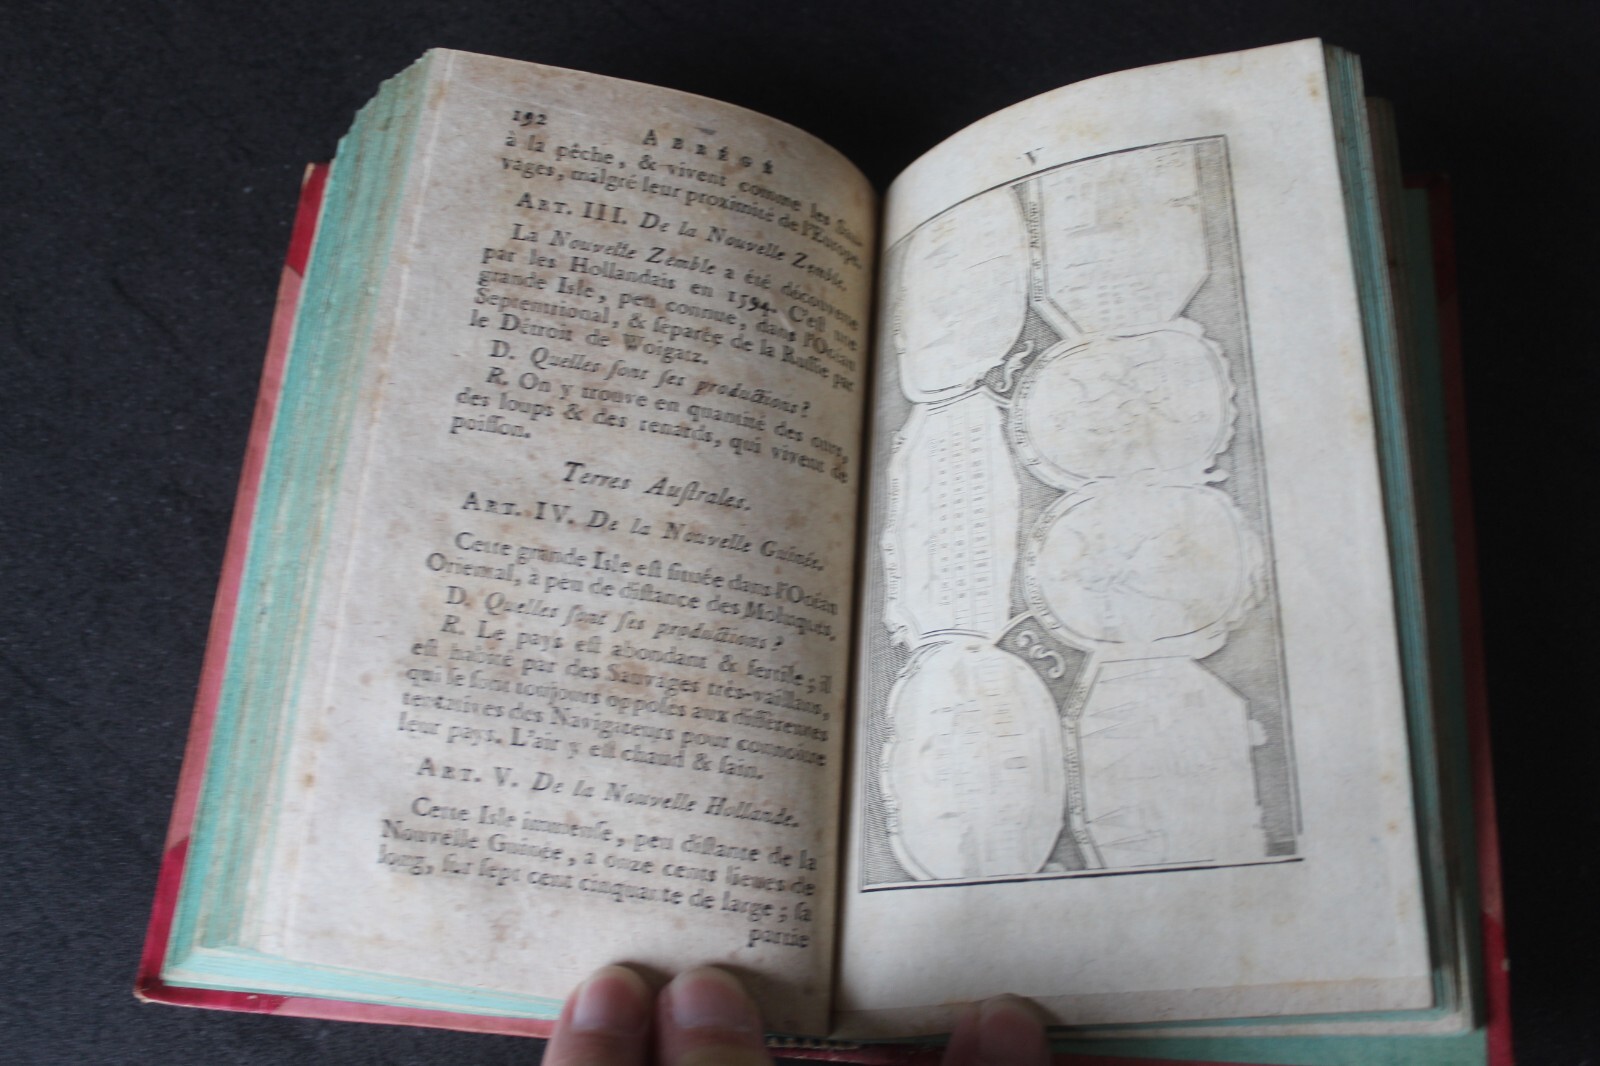 192
ABRÉGÉ
à la pêche, & vivent comme les Sau-
vages, malgré leur proximité de l'Europe.
ART. III. De la Nouvelle Zemble.
La Nouvelle Zemble a été découverte
par les Hollandais en 1594. C'eſt une
grande Isle, peu connue, dans l'Océan
Septentrional, & ſeparée de la Ruſſie par
le Détroit de Woigatz.
D. Quelles ſont ſes productions?
R. On y trouve en quantité des ours,
des loups & des renards, qui vivent de
poiſſon.
Terres Auſtrales.
ART. IV. De la Nouvelle Guinée.
Cette grande Isle eſt ſituée dans l'Océan
Oriental, à peu de diſtance des Moluques.
D. Quelles ſont ſes productions?
R. Le pays eſt abondant & fertile; il
eſt habité par des Sauvages très-vaillans,
qui ſe ſont toujours oppoſés aux différentes
tentatives des Navigateurs pour connoitre
leur pays. L'air y eſt chaud & ſain.
ART. V. De la Nouvelle Hollande.
Cette Isle immenſe, peu diſtante de la
Nouvelle Guinée, a onze cents lieues de
long, ſur ſept cent cinquante de large; ſa
partie
V